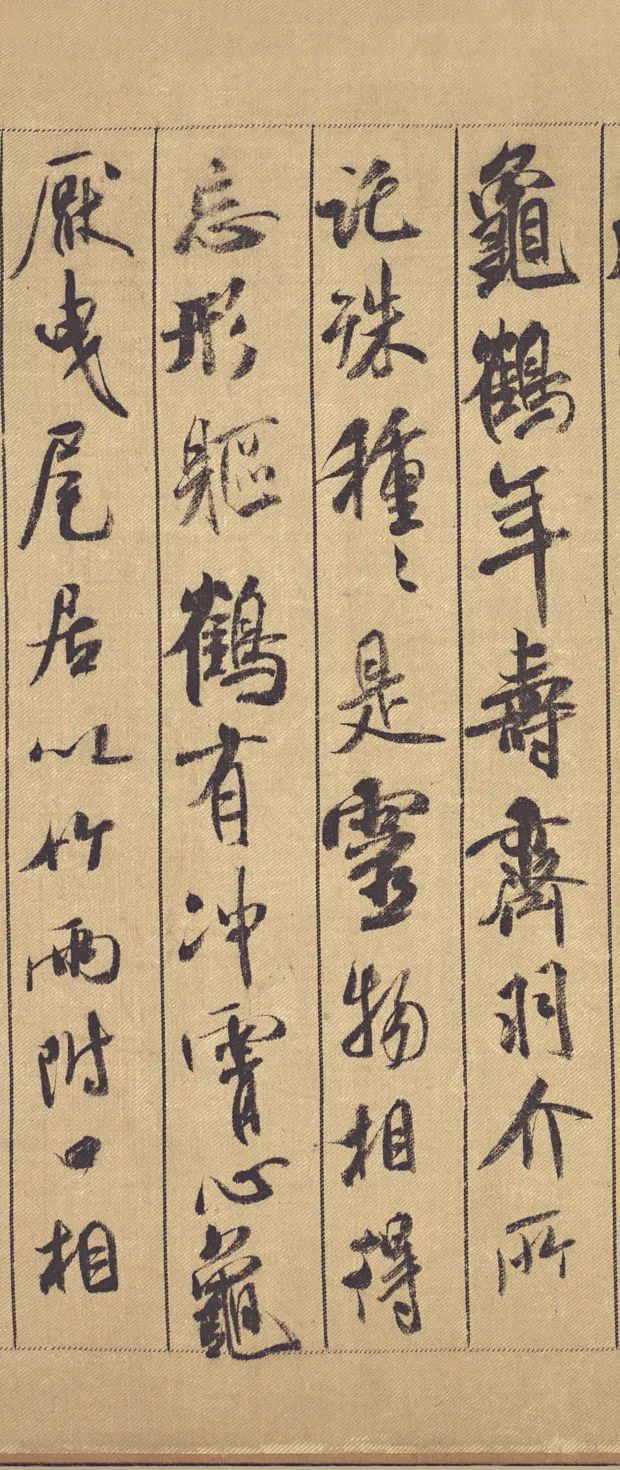 龜鶴年壽齊羽介所
託殊種種是靈物相得
忘形軀鶴有沖霄心龜
厭曳尾居以竹兩附口相